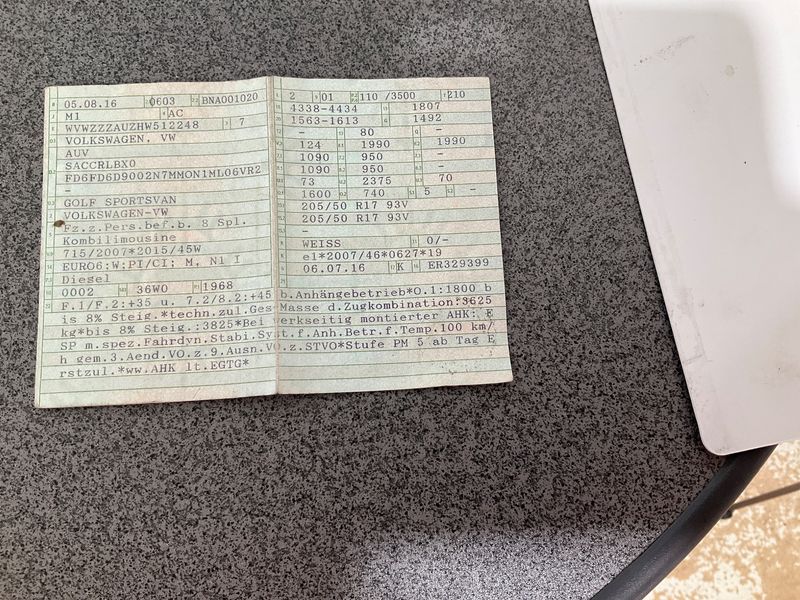 05.08.16 0603 BNA001020
MI AC
WVWZZZAUZHW512248 7
VOLKSWAGEN. VW
AUV
SACCRLBX0
FD6FD6D9002N7MMON1ML06VR2
-
GOLF SPORTSVAN
VOLKSWAGEN-VW
Fz.z.Pers.bef.b. 8 Spl.
Kombilimousine
715/2007*2015/45W
EURO6;W;PI/CI; M, N1 I
Diesel
0002 36W0 1968
2 01 110 /3500 210
4338-4434 1807
1563-1613 1492
- 80 -
124 1990 1990
1090 950 -
1090 950 -
73 2375 70
1600 740 5 -
205/50 R17 93V
205/50 R17 93V
-
WEISS 0/-
e1*2007/46*0627*19
06.07.16 K ER329399
F.1/F.2:+35 u. 7.2/8.2:+45 b.Anhängebetrieb*O.1:1800 b
is 8% Steig.*techn.zul.Ges-Masse d.Zugkombination:3625
kg*bis 8% Steig.:3825*Bei werkseitig montierter AHK: E
SP m.spez.Fahrdyn.Stabi.Syst.f.Anh.Betr.f.Temp.100 km/
h gem.3.Aend.VO.z.9.Ausn.VO.z.STVO*Stufe PM 5 ab Tag E
rstzul.*ww.AHK lt.EGTG*